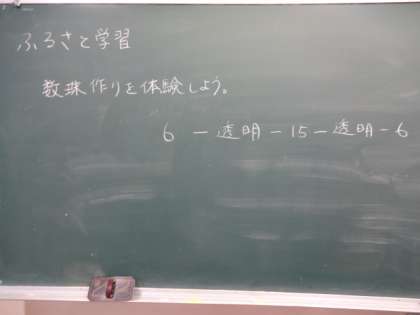 ふるさと学習
数珠作りを体験しよう。
6 - 透明 - 15 - 透明 - 6